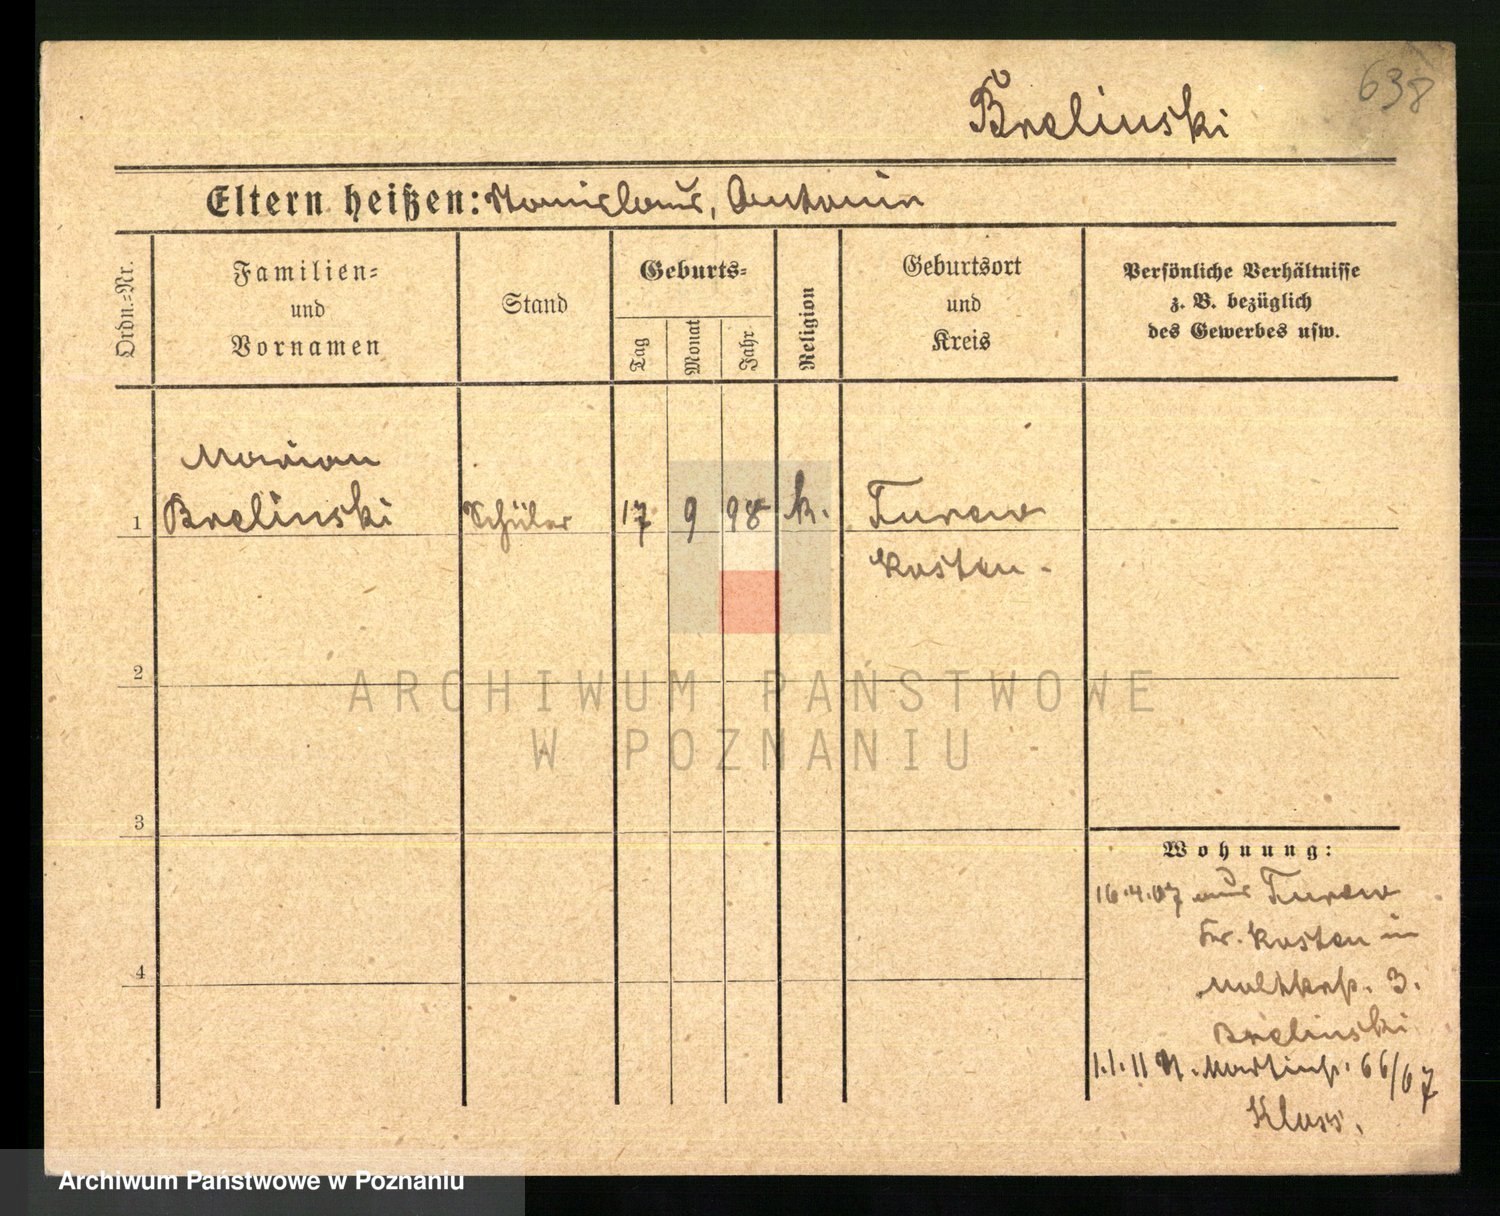 638
Brelinski
Eltern heißen: Stanislaus, Antonin
Ordn.=Nr.
Familien=
und
Vornamen
Stand
Geburts=
Tag
Monat
Jahr
Religion
Geburtsort
und
Kreis
Persönliche Verhältnisse
z. B. bezüglich
des Gewerbes usw.
Marian
1 Brelinski Schüler 17 9 98 k. Turew
Kosten.
2
3
4
Wohnung:
16.4.07 aus Turew
Kr. Kosten in
Moltkestr. 3.
Brelinski
1.1.11 St. Martinstr. 66/67
Klass.
ARCHIWUM PAŃSTWOWE
W POZNANIU
Archiwum Państwowe w Poznaniu